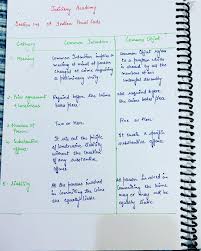 Judiciary Academy
Section 149 of Indian Penal Code
Common Intention
Common Object
Meaning
Common Intention implies a
meeting of mind of person
charged of crime regarding
a preliminary unity
Common Object refers
to a purpose which
is shared by all the
members of an
unlawful assembly
2. Prior agreement
Required before the
crime takes place
Not required before
the crime takes place
3. Number of Person
Two or More
Five or More
4. Substantive
offence
It sets out the principle
of constructive liability
without the creation
of any substantive
offence
It creates a
specific substantive
offence.
5. Liability
All the persons involved
in committing the crime
are equally liable
All person involved in
committing the crime
may or may not be
equally liable